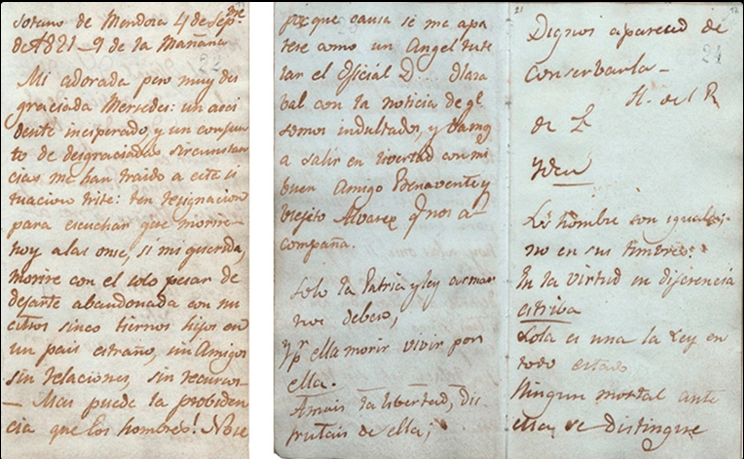 Sotano de Mendosa 4 de Sepre
de 1821 - 9 de la Mañana
Mi adorada pero muy des
graciada Mersedes: un acci
dente inesperado, y un conjun
to de desgraciadas sircunstan
cias me han traido a esta si
tuacion triste: ten resignacion
para escuchar que morire
hoy a las onse, si mi querida,
morire con el solo pesar de
dejarte abandonada con nu
estros sinco tiernos hijos en
un pais estraño, sin Amigos
sin relaciones, sin recursos
— Mas puede la probiden
cia que los hombres! No se
por que causa se me apa
rese como un Angel tute
lar el Oficial D... Olaza
bal con la noticia de qe
somos indultados, y vamos
a salir en livertad con mi
buen Amigo Benavente y
viejito Alvarez qe nos a-
compaña.
Solo la Patria y ley armar
nos deben,
Y pr ella morir vivir por
ella.
Amais la libertad, dis-
frutais de ella;
21
Dignos aparesed de
conservarla —
21
de
Yden
Los hombre son iguales;
no en sus timbres:
En la virtud su diferencia
estriba
Sola es una la Ley en
todo estado
Ningun mortal ante
ella, se distingue